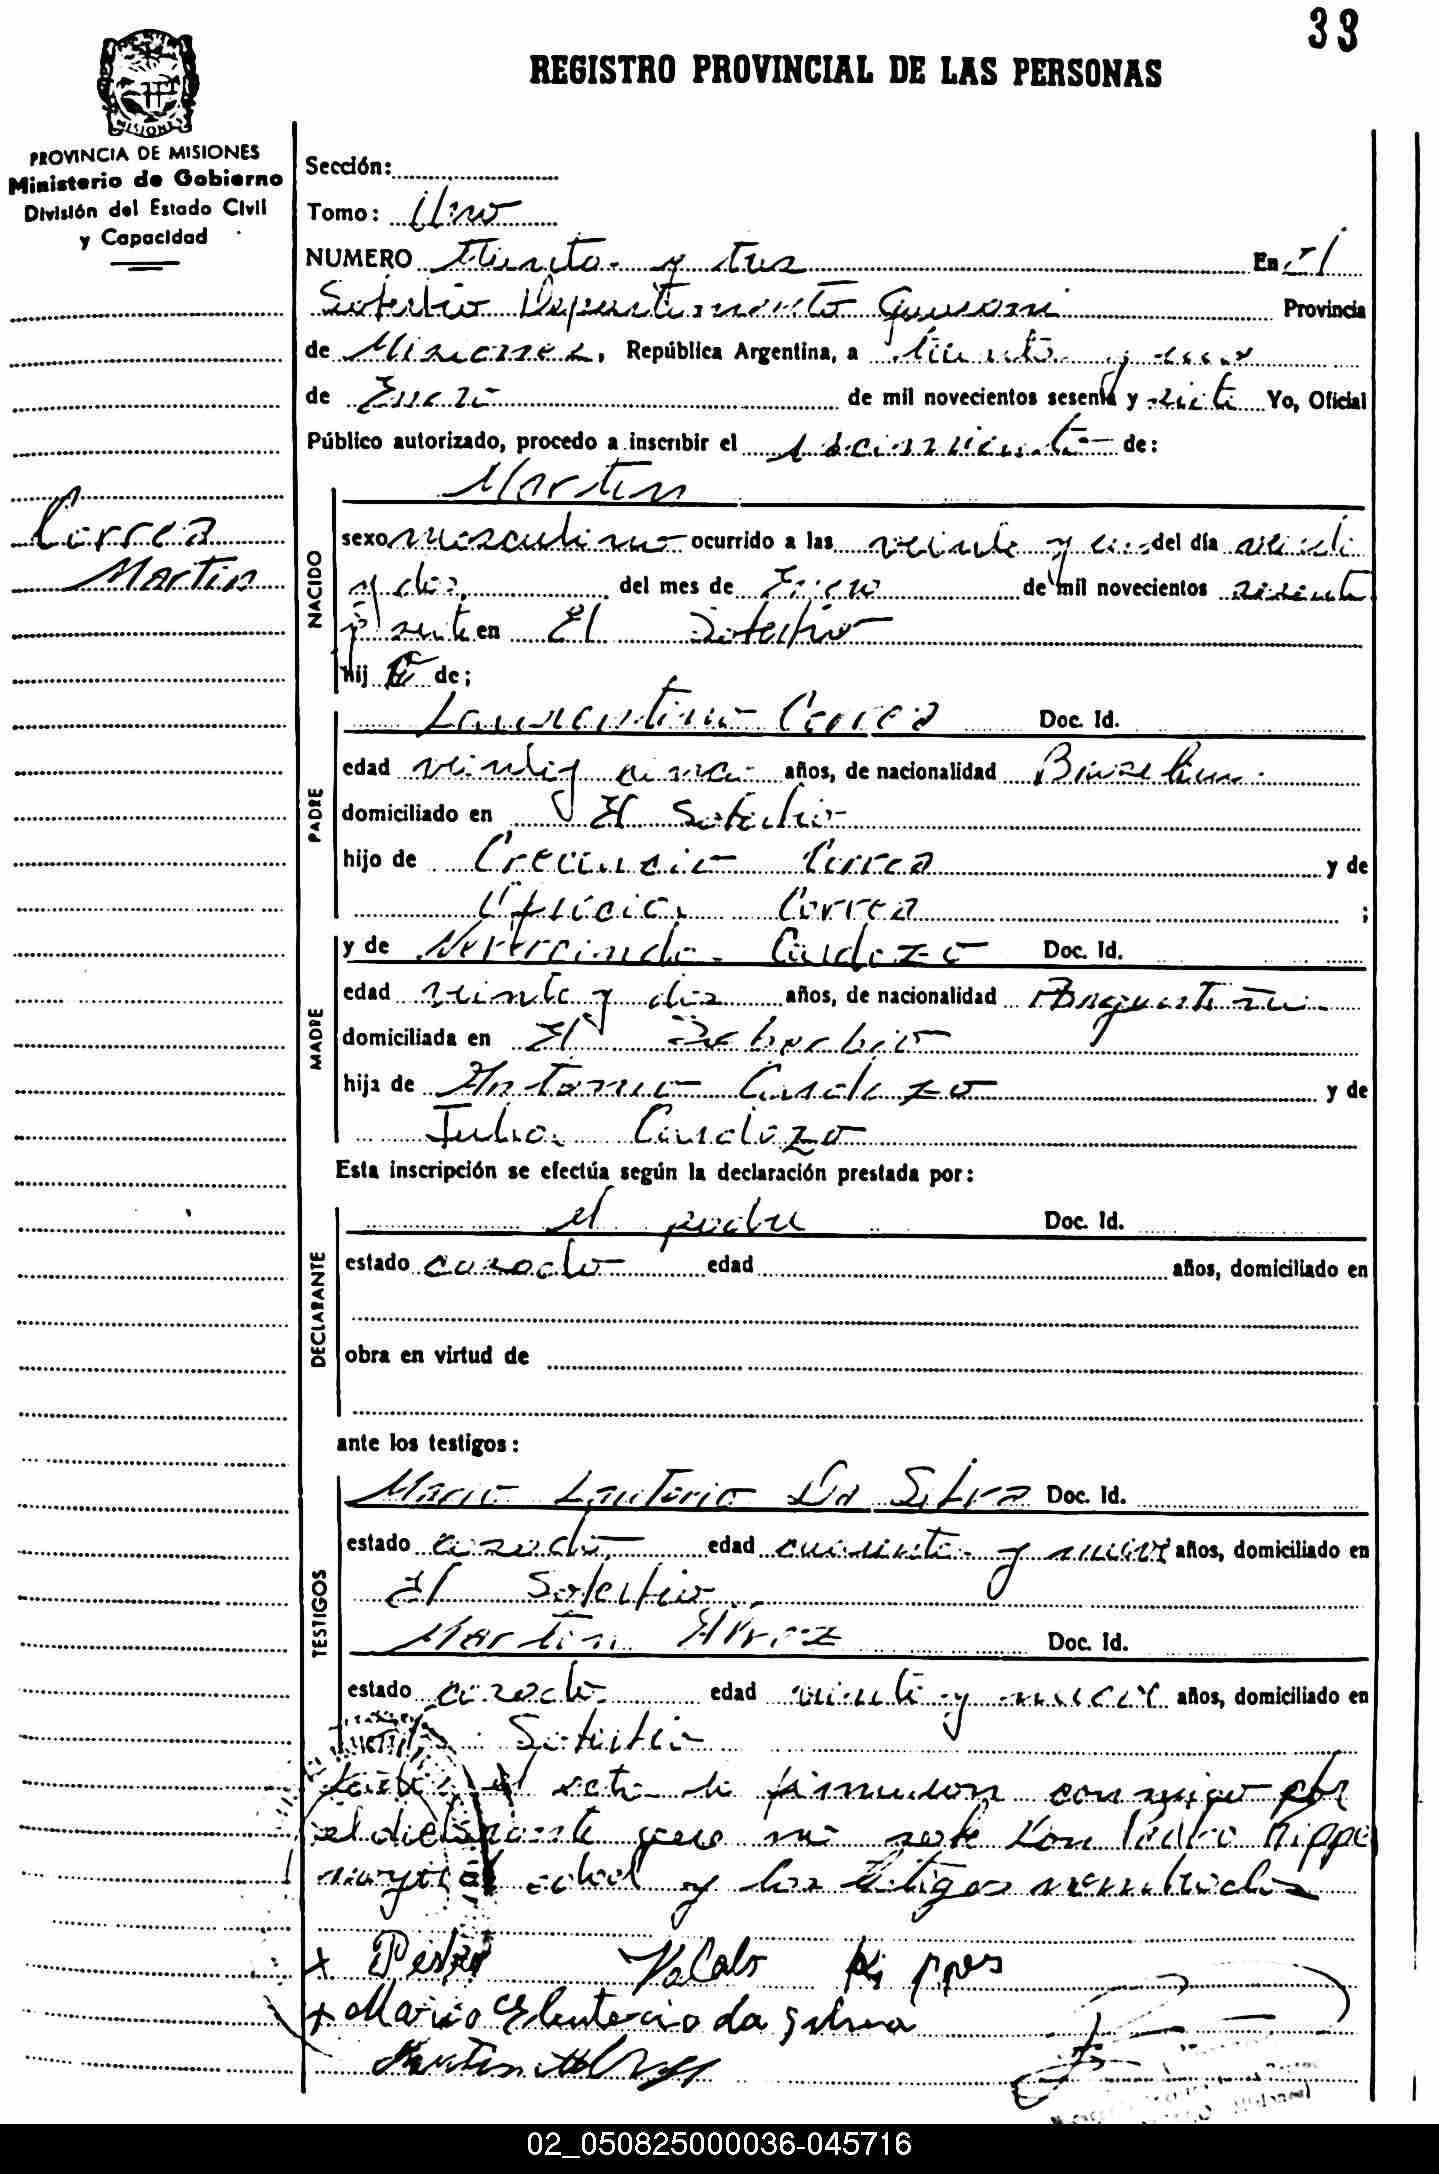 33
REGISTRO PROVINCIAL DE LAS PERSONAS
MISIONES
PROVINCIA DE MISIONES
Ministerio de Gobierno
División del Estado Civil
y Capacidad
Sección:
Tomo: Uno
NUMERO Treinta y tres En el
Soberbio Departamento Guarani Provincia
de Misiones, República Argentina, a treinta y uno
de Enero de mil novecientos sesenta y siete Yo, Oficial
Público autorizado, procedo a inscribir el nacimiento de:
Martin
Correa
Martin
NACIDO
sexo masculino ocurrido a las veinte y del día veinti
y dos, del mes de Enero de mil novecientos sesenta
y siete en El Soberbio
hijo de;
PADRE
Laurentino Correa Doc. Id.
edad veinti y cinco años, de nacionalidad Brasilera
domiciliado en El Soberbio
hijo de Crecencio Correa y de
Correa ;
MADRE
y de Cardozo Doc. Id.
edad veinte y dos años, de nacionalidad Argentina
domiciliada en El Soberbio
hija de Antonio Cardozo y de
Julia Cardozo
Esta inscripción se efectúa según la declaración prestada por:
DECLARANTE
el padre Doc. Id.
estado casado edad años, domiciliado en
obra en virtud de
ante los testigos:
TESTIGOS
Mario Da Silva Doc. Id.
estado casado edad cuarenta y nueve años, domiciliado en
El Soberbio
Martin Alvez Doc. Id.
estado casado edad veinte y nueve años, domiciliado en
Soberbio
el acta la firmaron conmigo por
el declarante que no sabe Don Pedro Kippe
mayor de edad y los testigos nombrados
x Pedro Kippes
x Mario Eleuterio da Silva
Martin
02_050825000036-045716